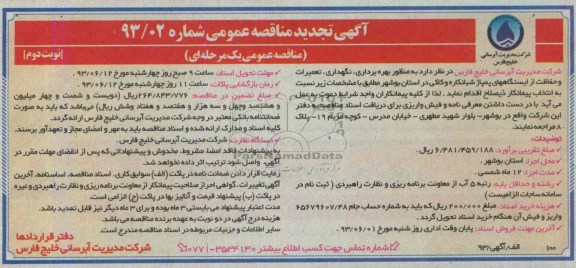 آگهی تجدید مناقصه عمومی شماره ۹۳/۰۲
(مناقصه عمومی یک مرحله‌ای)
(نوبت دوم)
شرکت مدیریت آبرسانی
خلیج فارس
شرکت مدیریت آبرسانی خلیج فارس در نظر دارد به منظور بهره برداری، نگهداری، تعمیرات
و حفاظت از ایستگاههای پمپاژ شبانکاره وکاکی در استان بوشهر مطابق با مشخصات زیر نسبت
به انتخاب پیمانکار ذیصلاح اقدام نماید. لذا از کلیه پیمانکاران واجد شرایط دعوت به عمل
می آید با در دست داشتن معرفی نامه و فیش واریزی برای دریافت اسناد مناقصه به دفتر
این شرکت واقع در بوشهر- بلوار شهید مطهری - خیابان مدرس - کوچه مریم ۱۹- پلاک
۸۰ مراجعه نمایند.
توضیحات:
مبلغ تقریبی برآورد: ۶/۴۸۱/۴۵۹/۱۸۸ ریال.
محل اجرا: استان بوشهر.
مدت اجرا: ۱۲ ماه شمسی.
رشته و حداقل پایه: رتبه ۵ آب از معاونت برنامه ریزی و نظارت راهبردی (ثبت نام در
سامانه ساجات الزامیست)
هزینه خرید اسناد: مبلغ ۴۰۰/۰۰۰ ریال که باید به شماره حساب جام
واریز و فیش آن هنگام خرید اسناد تحویل گردد.
آخرین مهلت فروش اسناد: پایان وقت اداری روز شنبه مورخ ۹۳/۰۶/۰۱.
۱۰۰ الف/آگهی/۹۳
مهلت تحویل اسناد: ساعت ۹ صبح روز چهارشنبه مورخ ۹۳/۰۶/۱۲.
زمان بازگشایی پاکات: ساعت ۱۱ روز چهارشنبه مورخ ۹۳/۰۶/۱۲.
مبلغ تضمین در مناقصه: ۲۶۴/۸۴۳/۷۷۶ ریال (دویست و شصت و چهار میلیون
و هشتصد وچهل و سه هزار و هفتصد و هفتاد وشش ریال) می‌باشد که باید به صورت
ضمانتنامه بانکی معتبر در وجه شرکت مدیریت آبرسانی خلیج فارس ارائه گردد.
کلیه اسناد و مدارک ارائه شده و اسناد مناقصه باید به مهر و امضای مجاز و تعهدآور برسند.
دستگاه نظارت: شرکت مدیریت آبرسانی خلیج فارس.
به پیشنهادات فاقد امضا، مشروط، مخدوش و پیشنهاداتی که پس از انقضای مهلت مقرر در
آگهی، واصل شود ترتیب اثر داده نخواهد شد.
رعایت قرار دادن ضمانت نامه در پاکت (الف) سوابق کاری، اسناد مناقصه، اساسنامه، آخرین
آگهی تغییرات، گواهی احراز صلاحیت پیمانکار از معاونت برنامه ریزی و نظارت راهبردی و غیره
در پاکت (ب) پیشنهاد قیمت و آنالیز بها در پاکت (ج) الزامی است.
مدت اعتبار پیشنهاد می بایستی ۳ ماه بوده و برای ۳ ماه دیگر نیز قابل تمدید باشد.
هزینه درج آگهی در دو نوبت به عهده برنده مناقصه می باشد.
سایر اطلاعات و جزئیات مربوطه در اسناد مناقصه مندرج است.
شماره تماس جهت کسب اطلاع بیشتر ۳۵۳۴۱۳۰-۰۷۷۱
دفتر قراردادها
شرکت مدیریت آبرسانی خلیج فارس
ParsNamadData